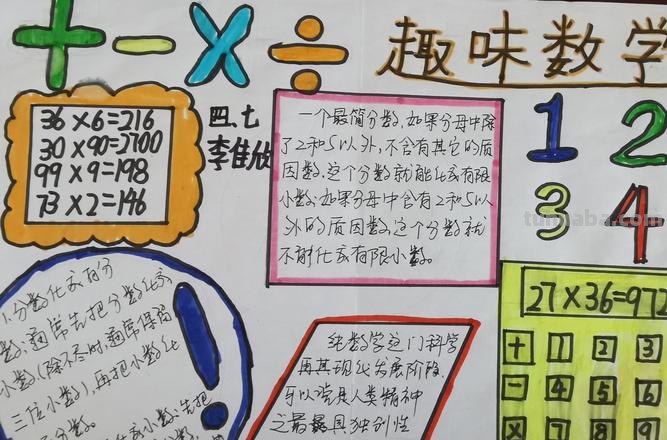 + - × ÷
趣味数学
36×6=216
30×90=2700
99×9=198
73×2=146
四、七
李佳欣
一个最简分数,如果分母中除
了2和5以外,不含有其它的质
因数,这个分数就能化成有限
小数;如果分母中含有2和5以
外的质因数,这个分数就
不能化成有限小数。
1 2
3 4
tuxiaba.com
27×36=972
+ 1 2 3
- 4 5 6
× 7 8 9
1.分数化成小
数:通常先把分数化成
小数(除不尽时,通常保留
三位小数),再把小数化
成百分数。
化成小数:先把
!
纯数学这门科学
再其现代发展阶段,
可以说是人类精神
之最具独创性